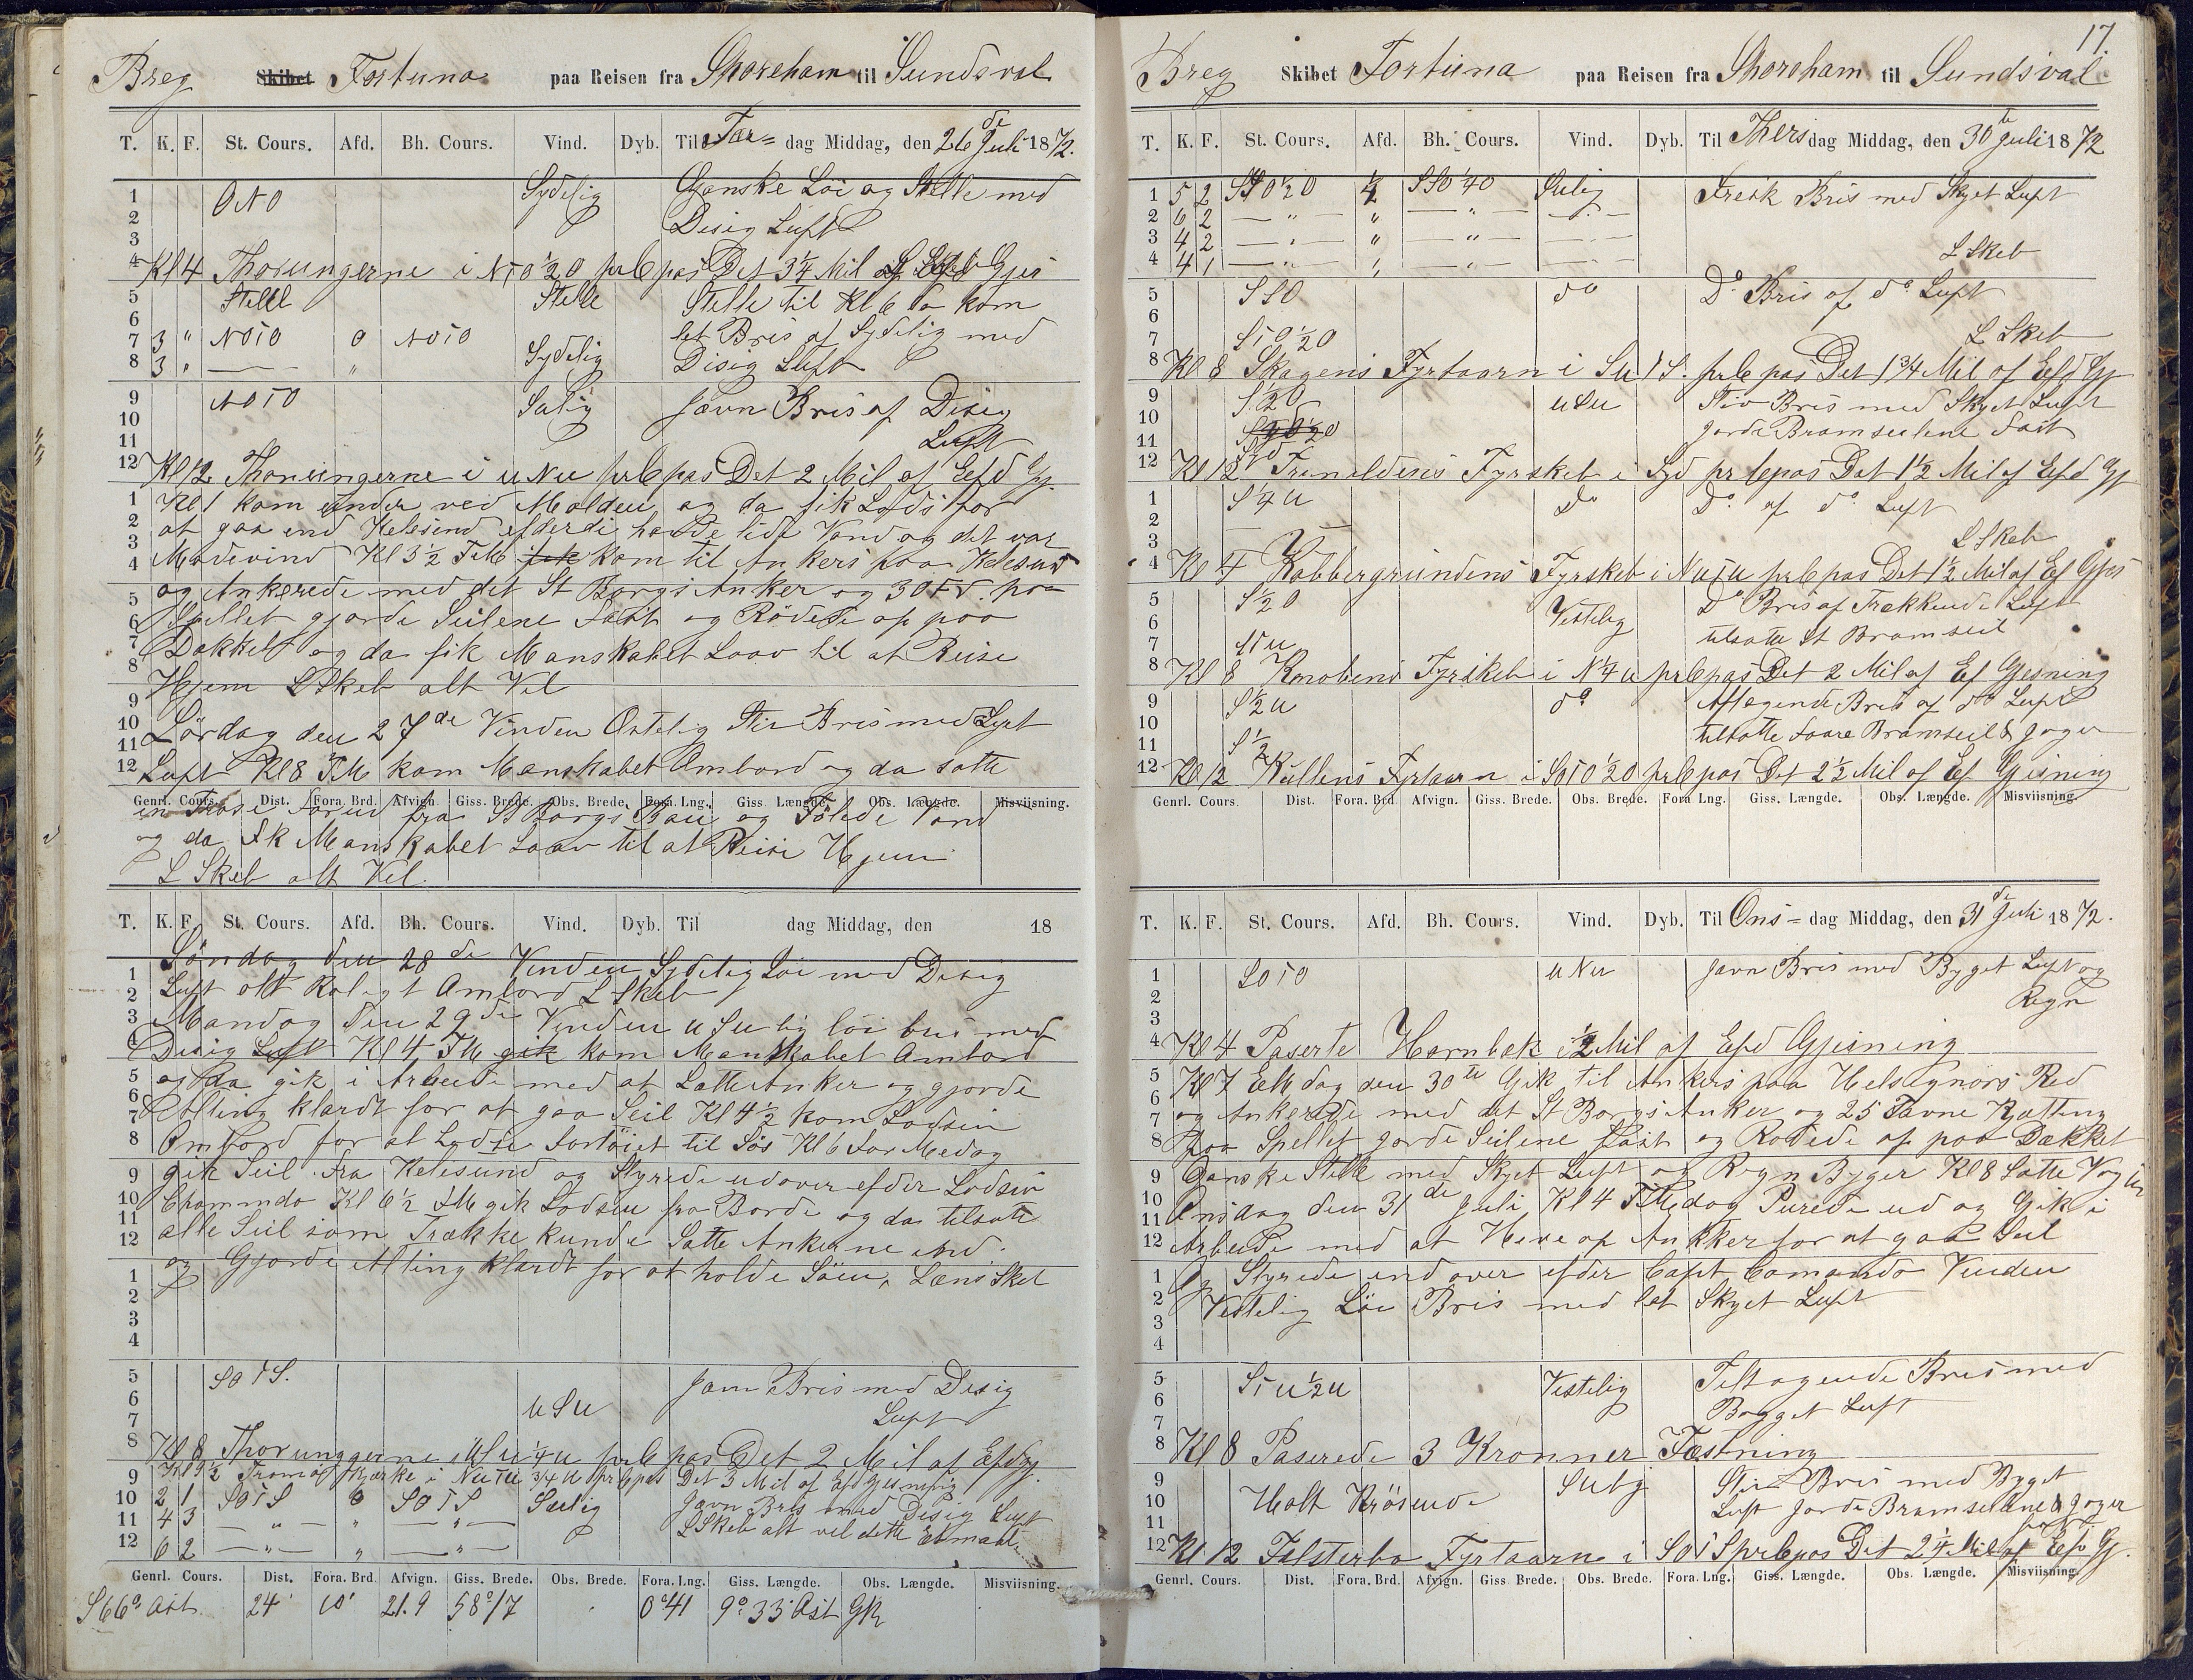 Breg Skibet Fortuna paa Reisen fra Shoreham til Sundsval
T. K. F. St. Cours. Afd. Bh. Cours. Vind. Dyb. Til Fær= dag Middag, den 26 de Juli 1872.
1 ONO Sydelig Ganske Löi og Stelle med
2 Disig Luft
3
4 Kl 4 Thorungerne i NTO 1/2 O prCpas Det 3 1/4 Mil af Gjes
5 Stelle Stelle Stelle til Kl 6 da kom
6 let Bris af Sydelig med
7 3 " NOTO 0 NOTO Sydelig Disig Luft
8 3 " — "
9 NOTO Sulig Javn Bris af Disig
10 Luft
11
12 Kl 12 Thorungerne i uNu prCpas Det 2 Mil af Efd Gj.
1 Kl 1 kom under ved Molden og da fik Lods for
2 at gaa end Helesund efderdi hadde lidt Vand og det var
3 Modevind Kl 3 1/2 TM fik kom til Ankers paa Helesund
4 og Ankerede med det St Borgs Anker og 30 Fd. paa
5 Spellet gjorde Seilene Fast og Rödede op paa
6 Dækket og da fik Manskabet Laav til at Reise
7 Hjem LSkeb alt Vel
8
9 Lördag den 27de Vinden Ostelig Stiv Bris med Lyst
10 Luft Kl 8 FM kom Manskabet Ombord og da satte
11
12
Genrl. Cours. Dist. Fora. Brd. Afvign. Giss. Brede. Obs. Brede. Fora. Lng. Giss Længde. Obs. Længde. Misviisning.
en Trose Forud fra St Borgs Bau og Fölede Vand
og da fik Manskabet Laav til at Reise Hjem
L Skeb alt Vel.
T. K. F. St. Cours. Afd. Bh. Cours. Vind. Dyb. Til dag Middag, den 18
Söndag den 28 de Vinden Sydelig Löi med Disig
1 Luft alt Roligt Ombord LSkeb
2 Mandag den 29 de Vinden uSulig löi bris med
3 Disig Luft Kl 4 FM gik kom Manskabet Ombord
4 og da gik i Arbeede med at Lætte Anker og gjorde
5 Alting klardt for at gaa Seil Kl 4 1/2 kom Lodsen
6 Ombord for at Lodse Fortöiet til Sös Kl 6 For Medag
7 gik Seil fra Helesund og Styrede udover efder Lodsen
8 Chommdo Kl 6 1/2 FM gik Lodsen fra Borde og da tilsatte
9 alle Seil som Trække kunde Satte Ankerne ind.
10 og Gjorde Alting klardt for at holde Söen, Læns Skeb
11
12
1
2
3
4
5 SOTS. Javn Bris med Disig
6 uSu Luft
7
8 Kl 8 Thorungerne i uSu 1/4 u prCpas Det 2 Mil af EfdGj.
9 Kl 9 1/2 Tromöe Kjerke i NuTu 3/4 u prCpas Det 3 Mil af Efd Gjesning
10 2 1 SOTS 0 SOTS Sulig Javn Bris med Disig Luft
11 4 3 — " — " — " — LSkeb alt vel dette Etmaal.
12 6 2 — " — " — " —
Genrl. Cours. Dist. Fora. Brd. Afvign. Giss. Brede. Obs. Brede. Fora. Lng. Giss. Længde. Obs. Længde. Misviisning.
S66° Ost. 24' 10' 21.9 58°17 0°41 9°33' Ost GR
17.
Breg Skibet Fortuna paa Reisen fra Shoreham til Sundsval
T. K. F. St. Cours. Afd. Bh. Cours. Vind. Dyb. Til Thers dag Middag, den 30 te Juli 1872
1 5 2 SSO 1/2 O 1/4 SSO 1/4 O Sulig Fresk Bris med Skyet Luft
2 6 2 — " — " — " — — " —
3 4 2 — " — " — " — — " —
4 4 1 — " — " — " — — " — LSkeb
5 SSO do Do Bris af do Luft
6
7 STO 1/2 O L Skeb
8 Kl 8 Skagens Fyrtaarn i SuTS. prCpas Det 1 3/4 Mil af Efd Gj
9 S 1/2 O uSu Stiv Bris med Skyet Luft
10 Jorde Bramseilene Fast
11 Syd
12 Kl 12 Trineldens Fyrskeb i Syd prCpas Det 1 1/2 Mil af Efd Gj
1 S 1/4 u do Do af do Luft
2
3 LSkeb
4 Kl 4 Kobbergrundens Fyrskeb i NuTu prCpas Det 1 1/2 Mil af Ef Gjes
5 S 1/2 O Vestelig Do Bris af Trækkende Luft
6 tilsatte St Bramseil
7 STu
8 Kl 8 Knobens Fyrskeb i N 1/4 u prCpas Det 2 Mil af Ef Gjesning
9 S 1/2 u do Aftagende Bris af do Luft
10 tilsatte Faare Bramseil & Jager
11 S 1/2
12 Kl 12 Kullens Fyrtaarn i SOTO 1/2 O prCpas Det 2 1/2 Mil af Ef Gjisning
Genrl. Cours. Dist. Fora. Brd. Afvign. Giss. Brede. Obs. Brede. Fora Lng. Giss. Længde. Obs. Længde. Misviisning.
T. K. F. St. Cours. Afd. Bh. Cours. Vind. Dyb. Til Ons= dag Middag, den 31 de Juli 1872.
1 SOTO uNu Javn Bris med Byget Luft og
2 Regn
3
4 Kl 4 Paserte Hornbek i 1/2 Mil af Efd Gjisning
5 Kl 7 EM dag den 30te Gik til Ankers paa Helsegnörs Red
6 og Ankerede med det St Borgs Anker og 25 Favne Kjætting
7 paa Spellet jorde Seilene Fast og Rodede op paa Dækket
8 Ganske Stelle med Skyet Luft og Regn Byger Kl 8 Satte Vagten
9 Onsdag den 31 de Juli Kl 4 FMdag Purede ud og Gik i
10 Arbeide med at Hive op Ankker for at gaa Seil
11 og Styrede indover efder Capt Comando Vinden
12 Vestelig Löi Bris med let Skyet Luft
1
2
3
4
5 STu 1/2 u Vestelig Teltagende Bris med
6 Bygget Luft
7
8 Kl 8 Paserede 3 Kronner Fæstning
9 Sulg Stiv Bris med Byget
10 Holt Krösende Luft Jorde Bramseilene & Jager
11
12 Kl 12 Falsterbo Fyrtaarn i SOTS prCpas Det 2 1/4 Mil af Efd Gj.
Genrl. Cours. Dist. Fora. Brd. Afvign. Giss Brede. Obs. Brede. Fora. Lng. Giss. Længde. Obs. Længde. Misviisning.